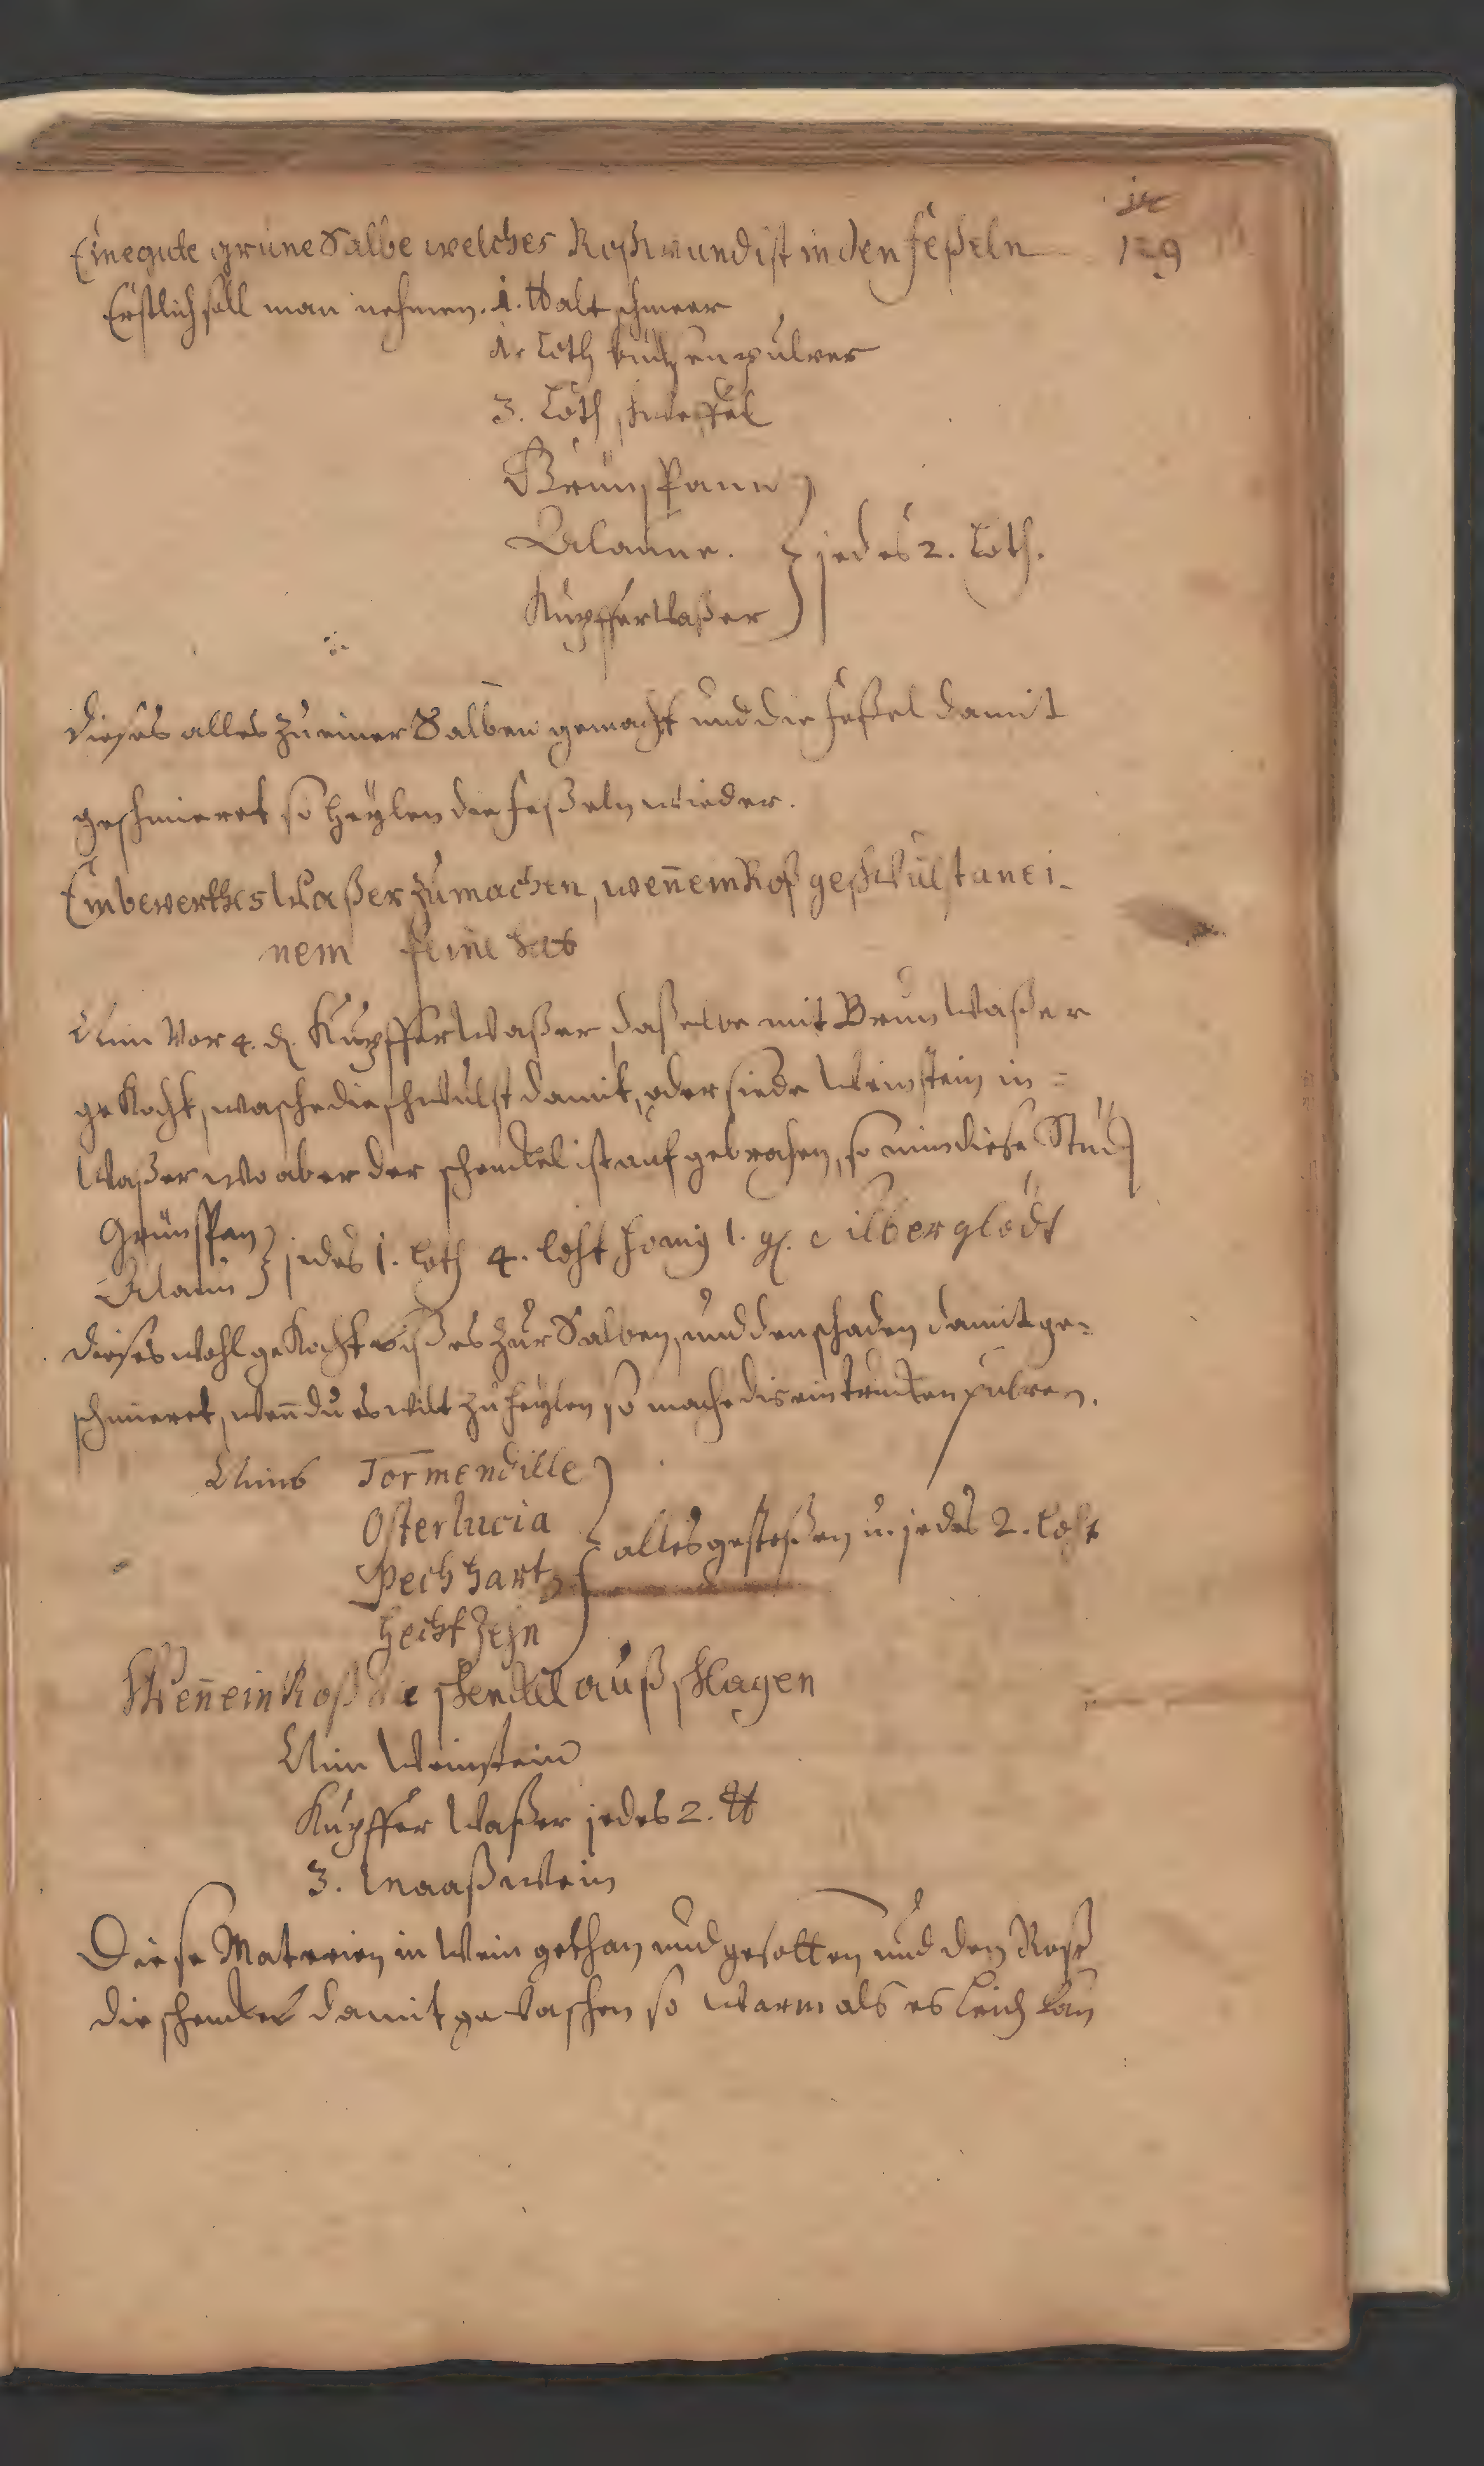 129
Eine gute grüne Salbe welches Roß wund ist in den feßeln
Erstlich soll man nehmen. 1. ℔ alt schmeer
1. Loth büchsen pulver
3. Loth schweffel
Grünspann
Alaunn. } jedes 2. Loth.
Kupfferwaßer
dieses alles zu einer Salben gemacht und die feßel damit
geschmieret so heylen die feßeln wieder.
Ein bewerthes Waßer zu machen, weñ ein Roß geschwulst an ei-
nem beine hat
Nim vor 4. d. Kupfferwaßer daßelbe mit Brunwaßer
gekocht, wasche die schwulst damit, oder siede Weinstein in =
Waßer wo aber der schenckel ist aufgebrochen, so nim diese Stück
Grünspan
Alaun } jedes 1. loth 4. loht honig 1. gl. silberglödt
dieses wohl gekocht biß es zur Salben, und den schaden damit ge-
schmieret, weñ du es wilt zu heylen so mache dis ein trucken pulver.
Nims Tormendille
Osterlucia } alles gestoßen u. jedes 2. loht
Pech hartz
hecht Zehn
Weñ ein Roß die schenckel auß schlagen
Nim Weinstein
Kupffer Waßer jedes 2. ℔
3. Maaß wein
Diese Materien in Wein gethan und gesotten und den Roß
die schenckel damit gewaschen so warm als es leid kan